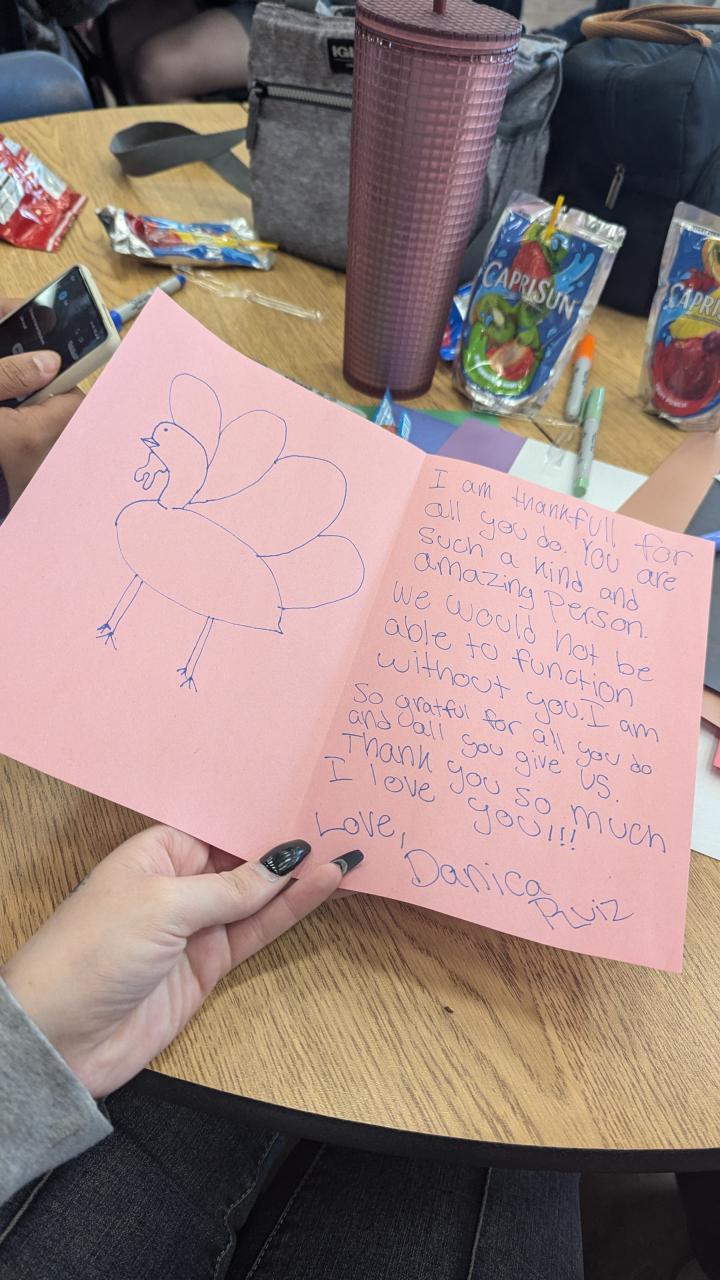 IGL
CAPRISUN
CAPRIS
I am thankfull for
all you do. You are
such a kind and
amazing Person.
we would not be
able to function
without you. I am
so gratful for all you do
and all you give us.
Thank you so much
I love you!!!
Love,
Danica
Ruiz